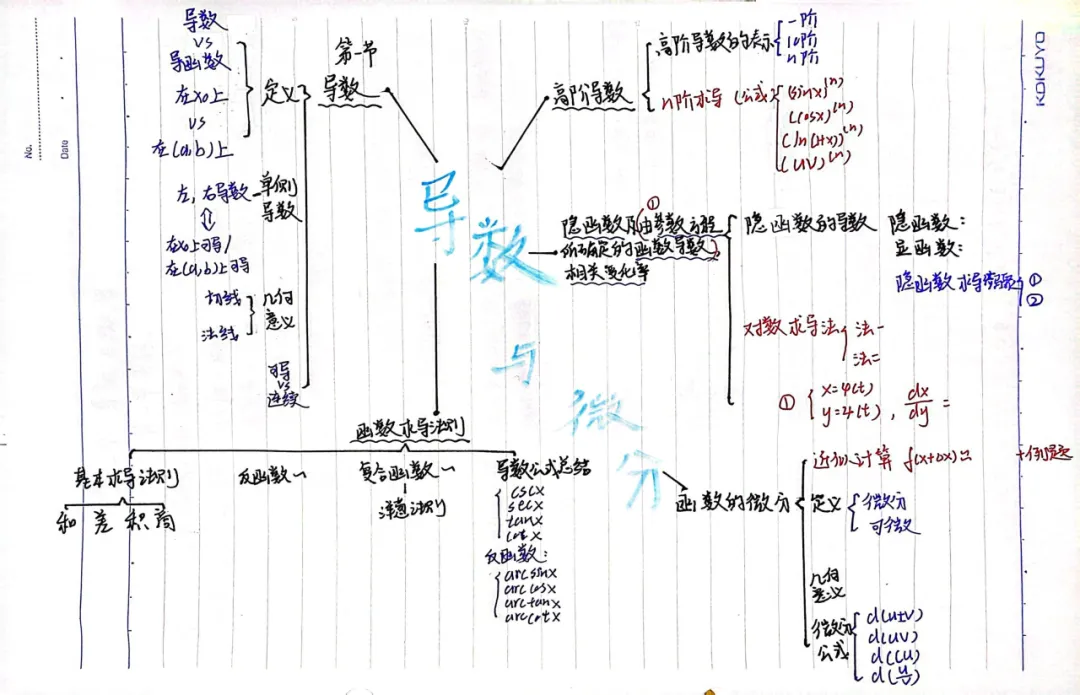 导数与微分
第一节
导数
定义
导数
vs
导函数
在x0上
vs
在(a,b)上
单侧
导数
左,右导数
⇕
在x0上可导/
在(a,b)上可导
几何
意义
切线
法线
可导
vs
连续
函数求导法则
基本求导法则
和 差 积 商
反函数~
复合函数~
法则
导数公式总结
cscx
secx
tanx
cotx
反函数:
arcsinx
arccosx
arctanx
arccotx
高阶导数
高阶导数的表示
一阶
10阶
n阶
n阶求导(公式)
(sinx)^(n)
(cosx)^(n)
(ln(1+x))^(n)
(uv)^(n)
①
隐函数及由参数方程
所确定的函数导数
相关变化率
隐函数的导数
隐函数:
显函数:
隐函数求导
①
②
对数求导法
法一
法二
① { x=φ(t)
y=4(t) , dx/dy =
函数的微分
近似计算 f(x+Δx)≈ +例题
定义
微分
可微
几何
意义
微分
公式
d(u±v)
d(uv)
d(Cu)
d(u/v)
No.
Date
KOKUYO